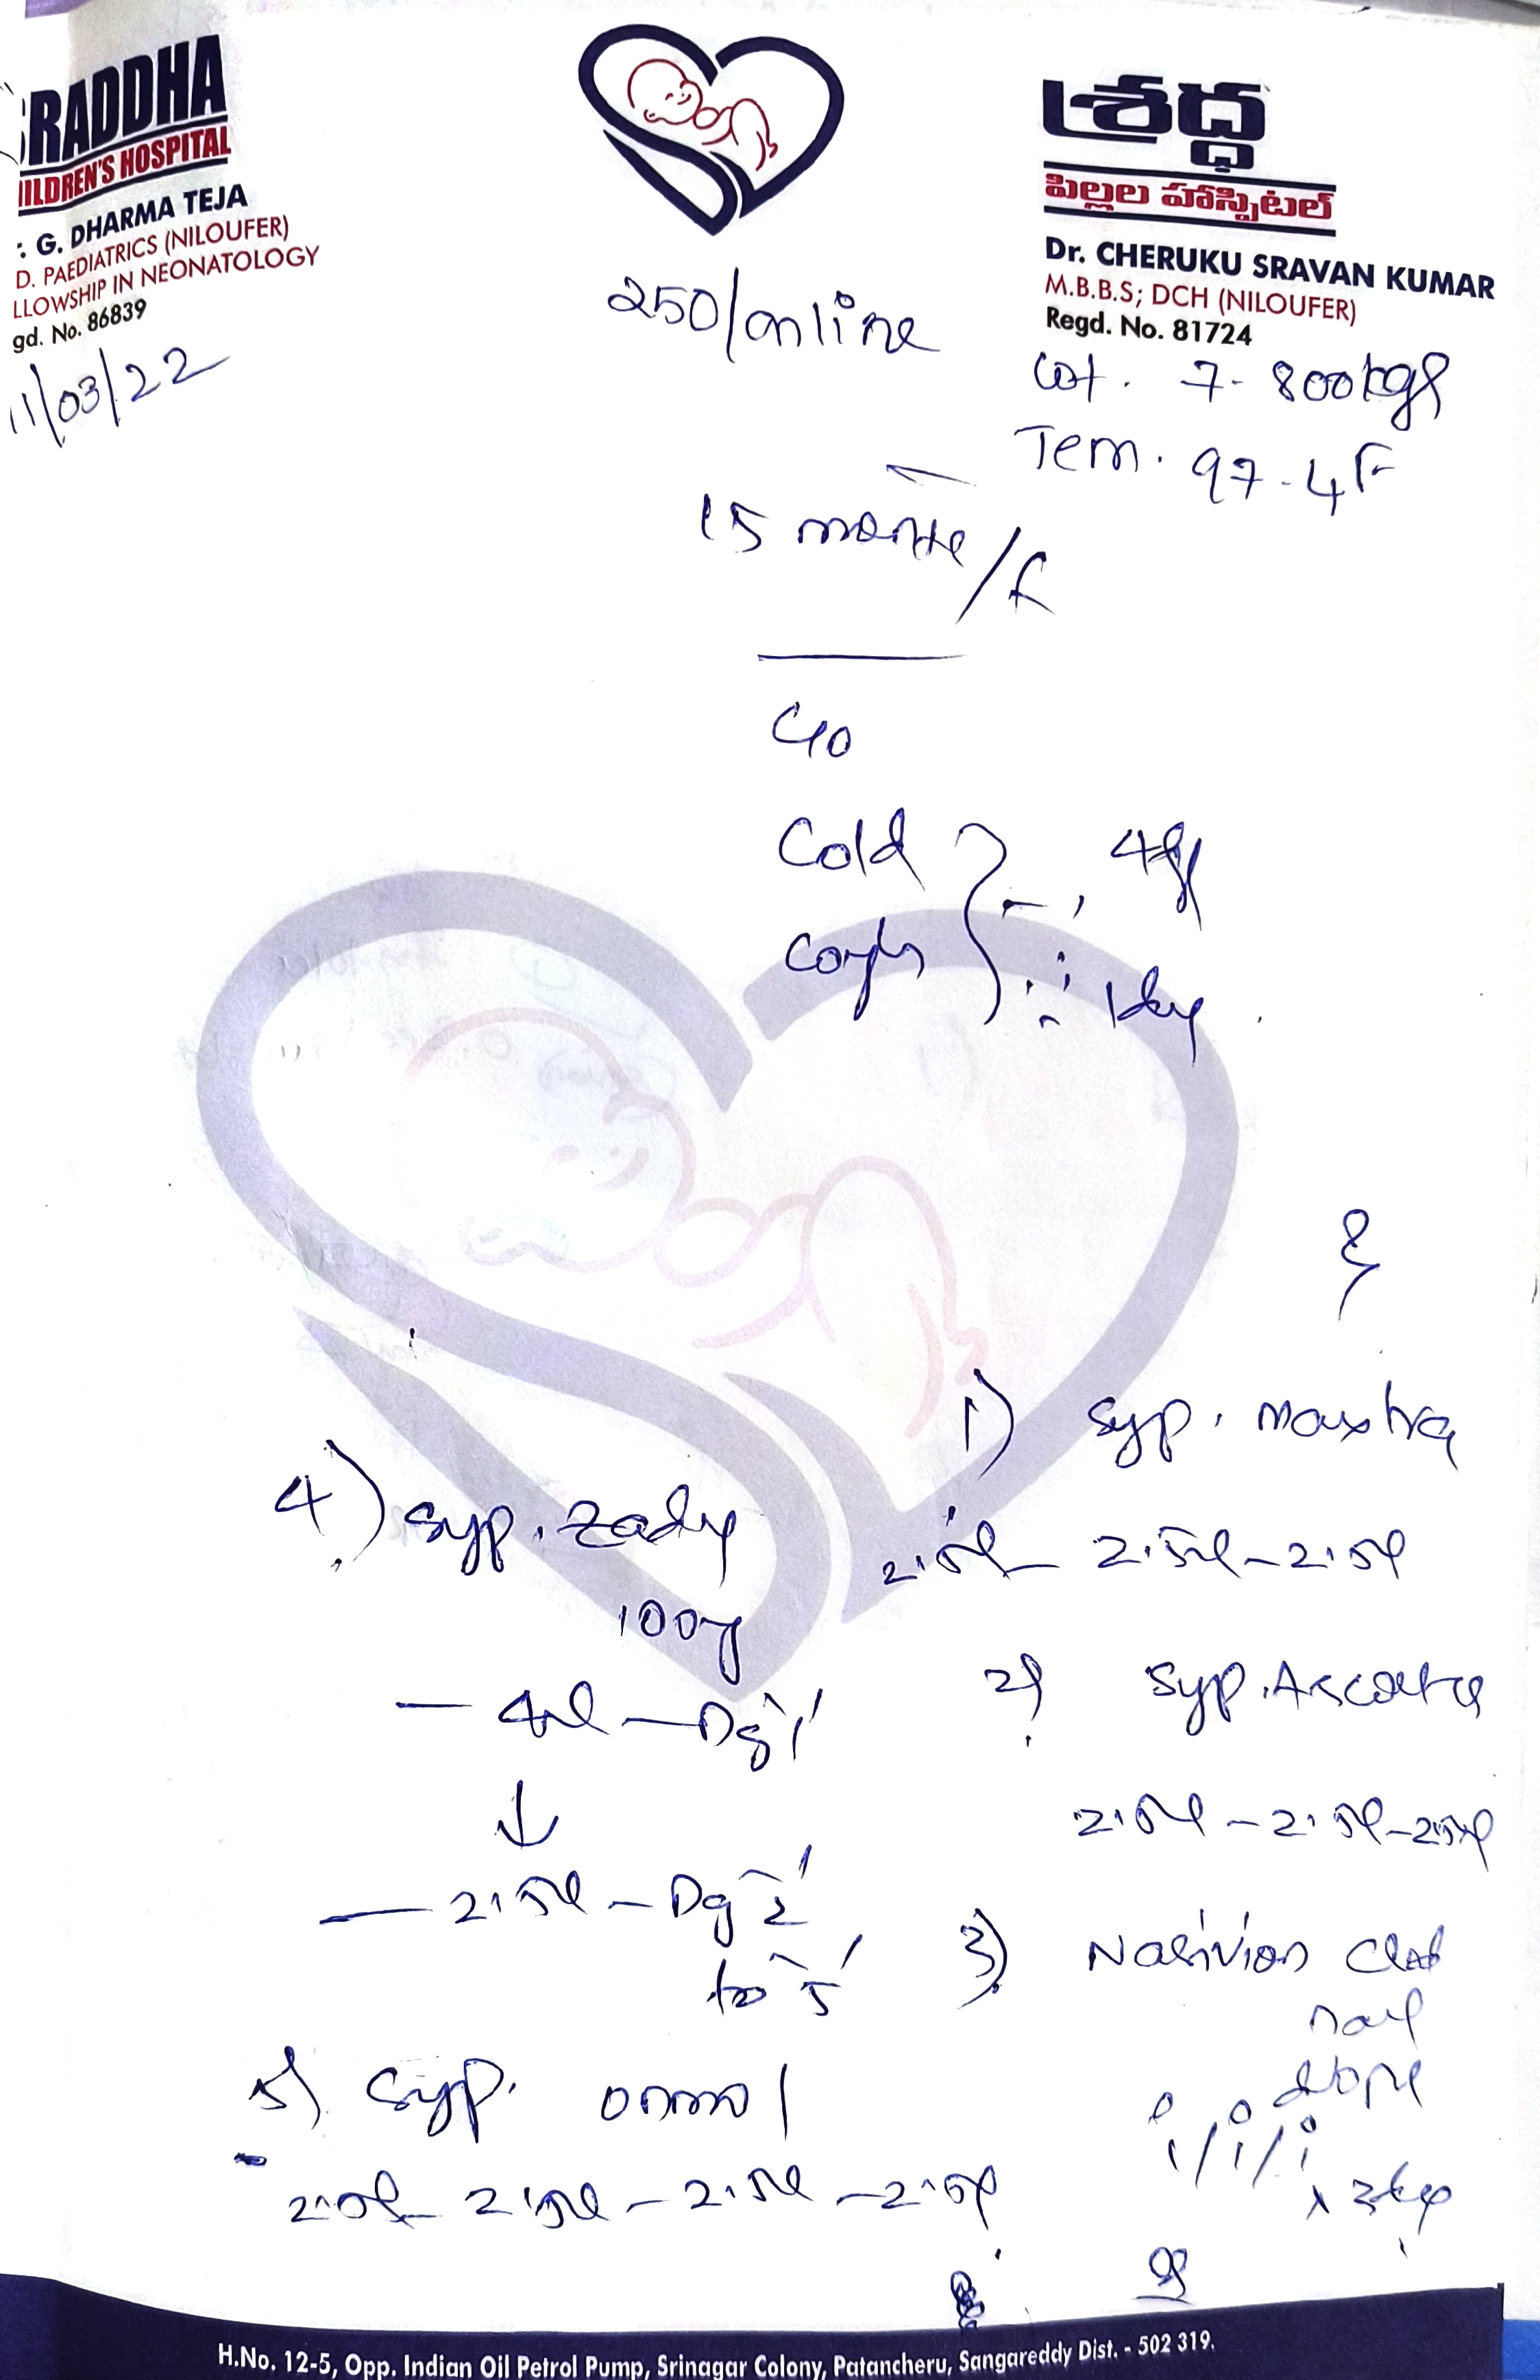 RADDHA
ILDREN'S HOSPITAL
: G. DHARMA TEJA
D. PAEDIATRICS (NILOUFER)
LLOWSHIP IN NEONATOLOGY
gd. No. 86839
11/03/22
250/online
శ్రద్ధ
పిల్లల హాస్పిటల్
Dr. CHERUKU SRAVAN KUMAR
M.B.B.S; DCH (NILOUFER)
Regd. No. 81724
wt. 7-800kgs
Tem. 97-4F
15 months/F
C/o
Cold
Cough
1day
1) Syp. Maxtra
2.5ml - 2.5ml - 2.5ml
2) Syp. Ascoril
2.5ml - 2.5ml - 2.5ml
3) Nasivion
nasal
drops
x 3day
4) Syp. Zady
100
- 4ml - Day 1
↓
- 2.5ml - Day 2
to 5
5) Syp.
2.5ml - 2.5ml - 2.5ml - 2.5ml
H.No. 12-5, Opp. Indian Oil Petrol Pump, Srinagar Colony, Patancheru, Sangareddy Dist. - 502 319.